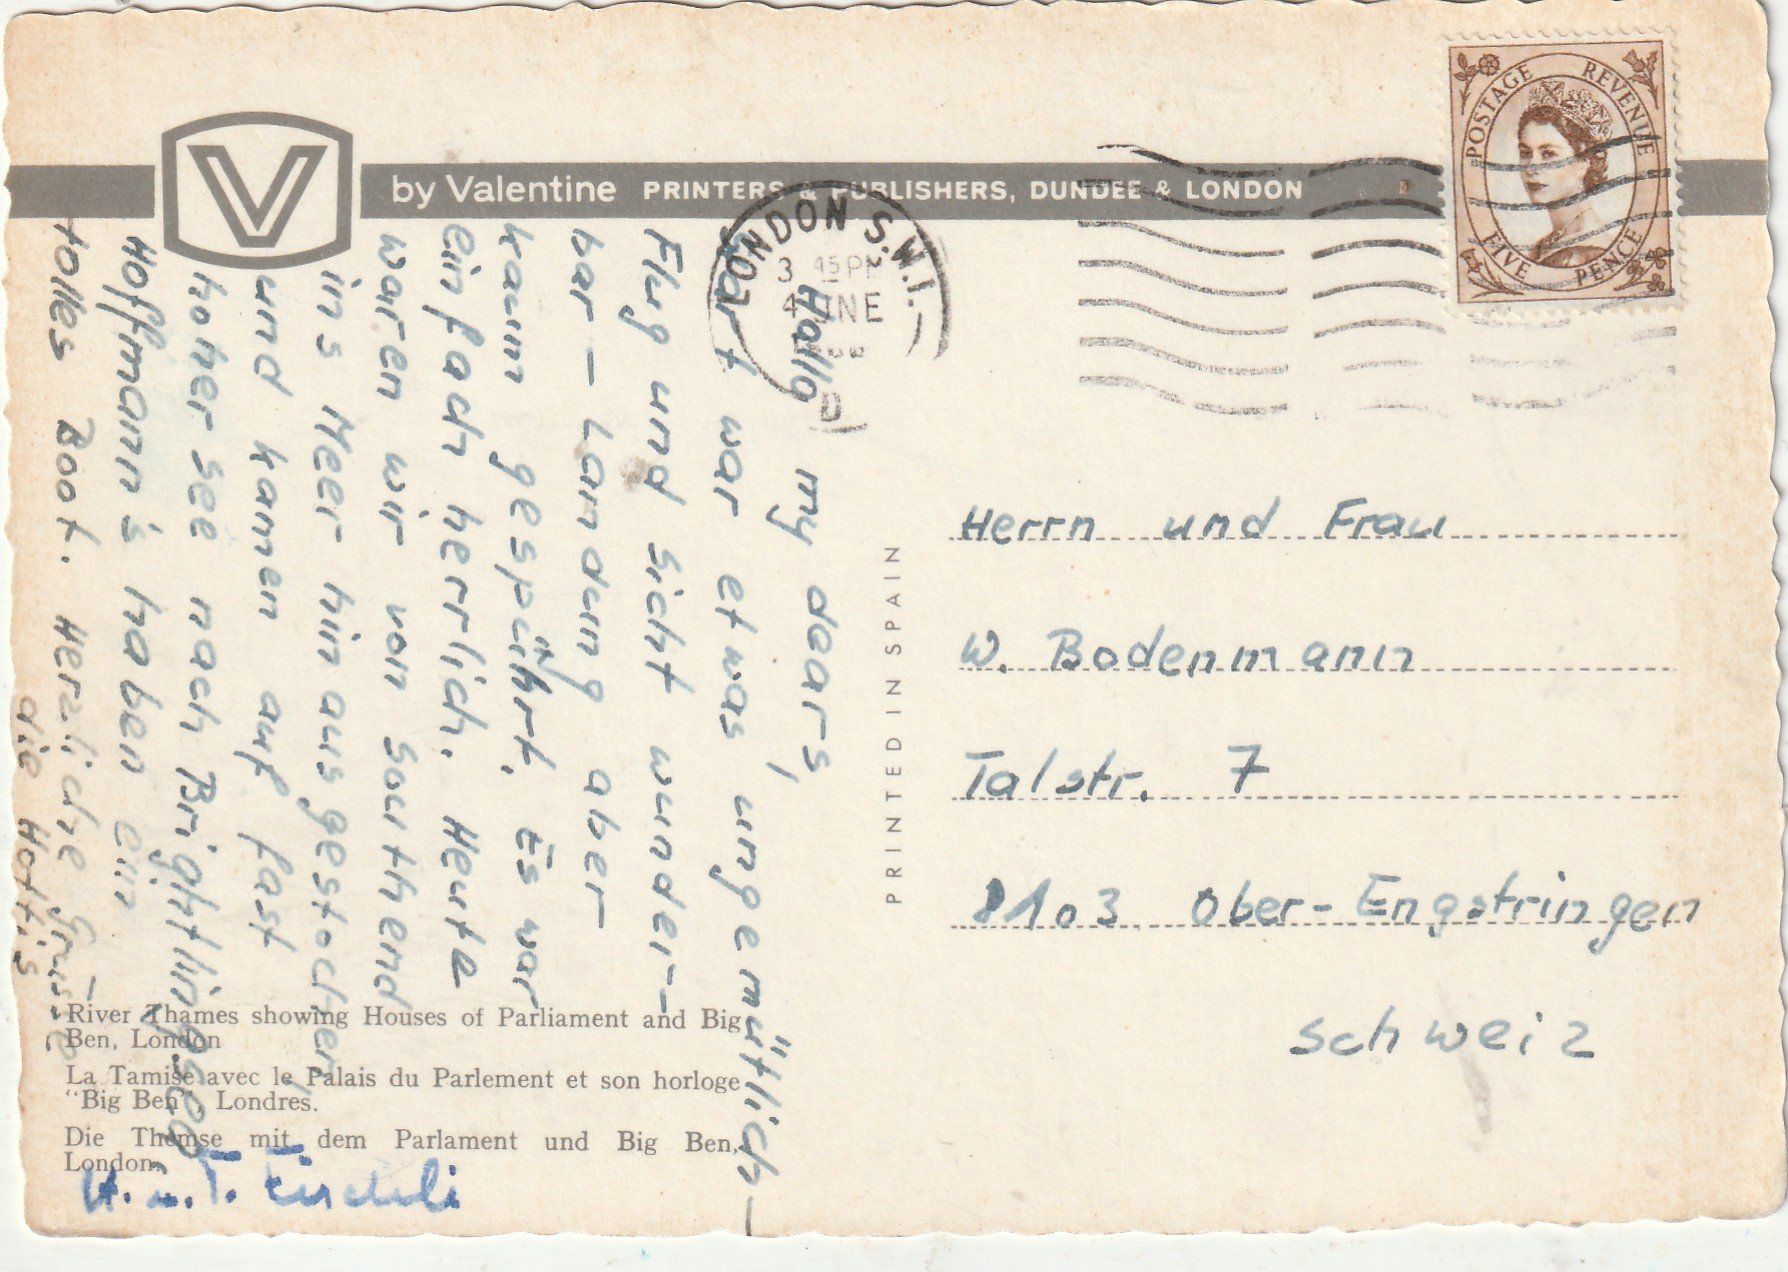 V
by Valentine PRINTERS & PUBLISHERS, DUNDEE & LONDON
POSTAGE REVENUE
FIVE PENCE
LONDON S.W.1.
3 45 PM
4 JUNE
D
Hallo my dears,
Start war etwas ungemütlich –
Flug und Sicht wunder-
bar – Landung aber
kaum gespührt. Es war
einfach herrlich. Heute
waren wir von Southend
ins Meer hinausgestochen
und kamen auf fast
hoher See nach Brightlingsea
Hoffmann's haben ein
tolles Boot. Herzliche Grüsse
die Hottis
H. u. T.
PRINTED IN SPAIN
Herrn und Frau
W. Bodenmann
Talstr. 7
8103 Ober-Engstringen
Schweiz
River Thames showing Houses of Parliament and Big
Ben, London
La Tamise avec le Palais du Parlement et son horloge
"Big Ben", Londres.
Die Themse mit dem Parlament und Big Ben,
London.